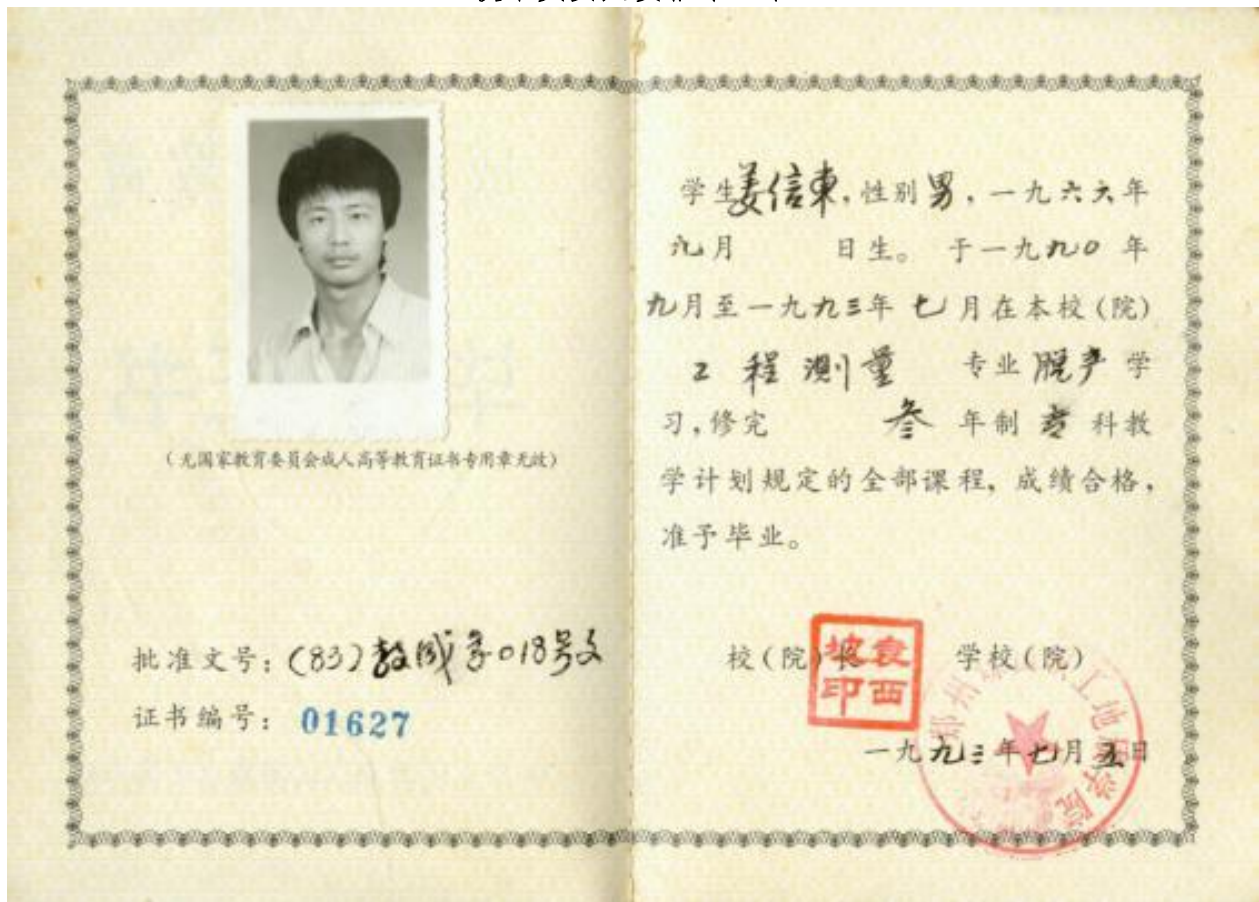 （无国家教育委员会成人高等教育证书专用章无效）
批准文号：(83)教成字018号文
证书编号：01627
学生姜信東，性别男，一九六六年
九月 日生。于一九九0年
九月至一九九三年七月在本校(院)
工程测量 专业脱产学
习，修完 叁年制专科教
学计划规定的全部课程，成绩合格，
准予毕业。
校(院)长 学校(院)
袁西
坡印
一九九三年七月五日
郑州 工地 学院